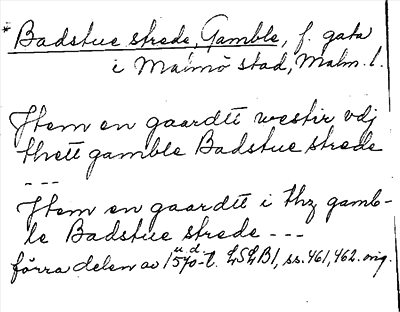 * Badstue strede, Gamble, f. gata
i Malmö stad, Malm. l.
Jtem en gaardtt westir vdj
thett gamble Badstue strede
---
Jtem en gaardtt i thz gamb-
le Badstue strede ---
u. d.
förra delen av 1570-t. LSLB1, ss. 461, 462. orig.